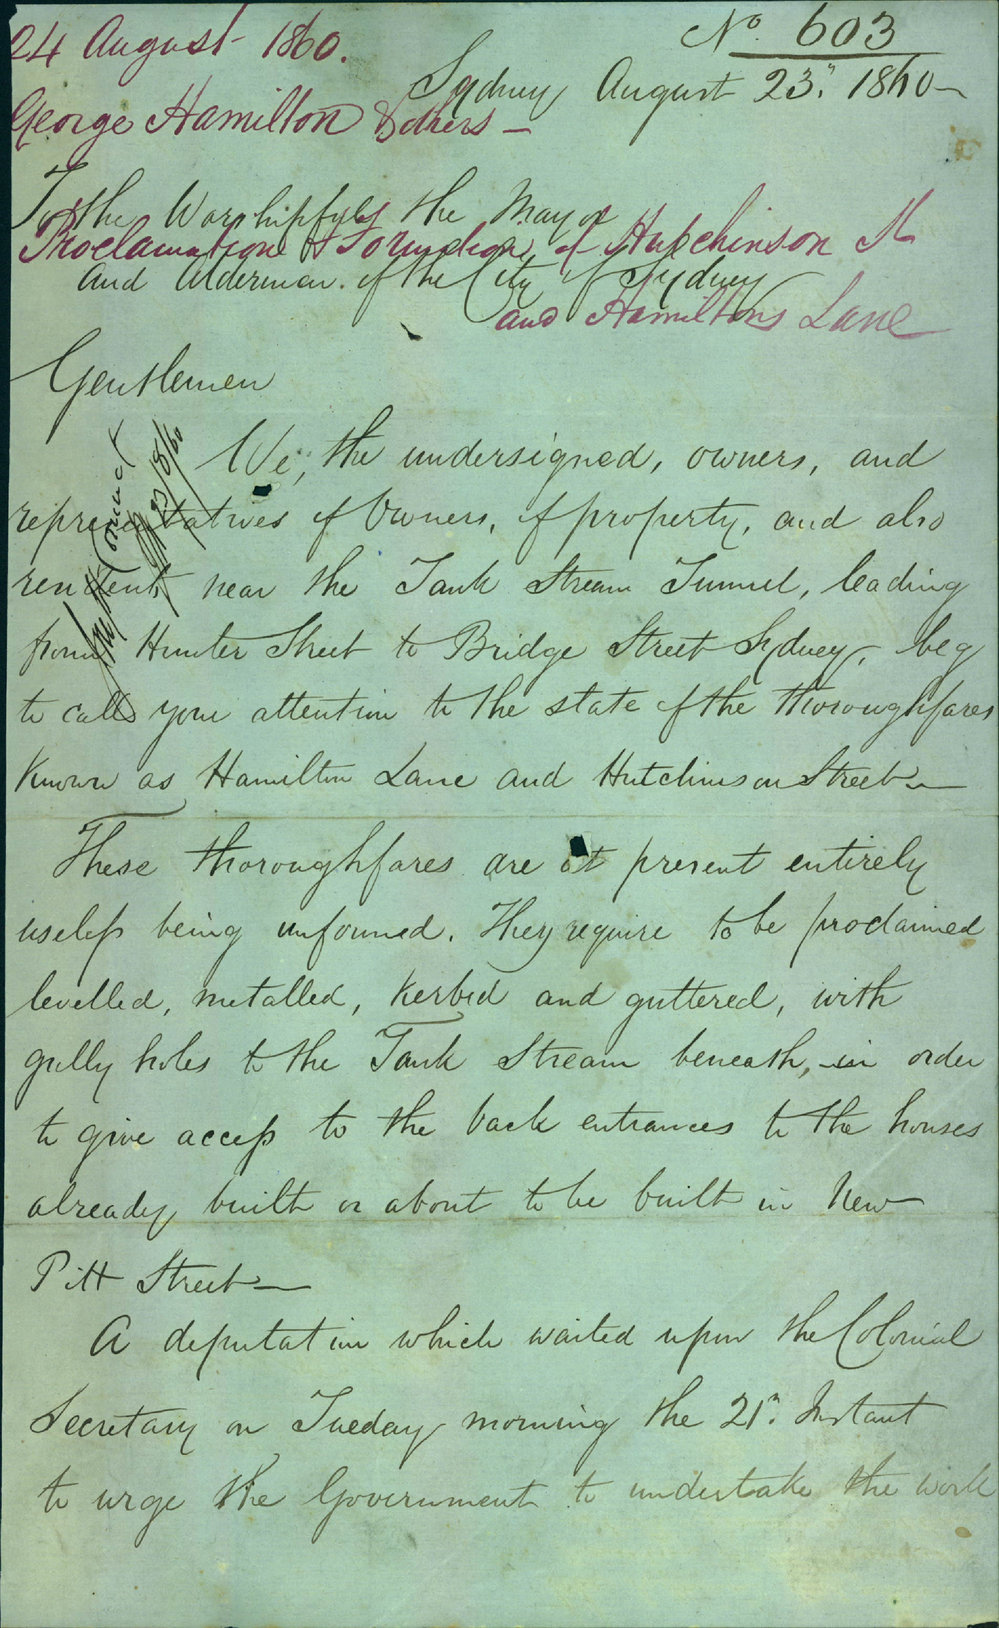 24 August 1860.
No. 603
Sydney August 23" 1860
George Hamilton & others
To the Worshipful the Mayor
Proclamation & Formation of Hutchinson St
And Aldermen of the City of Sydney
and Hamiltons Lane
Gentlemen
We, the undersigned, owners, and
representatives of Owners, of property, and also
resident near the Tank Stream Tunnel, leading
from Hunter Street to Bridge Street Sydney, beg
to call your attention to the state of the thoroughfares
Known as Hamilton Lane and Hutchinson Street
These thoroughfares are at present entirely
useless being unformed. They require to be proclaimed
levelled, metalled, kerbed and guttered, with
gully holes to the Tank Stream beneath, in order
to give access to the back entrances to the houses
already built or about to be built in New
Pitt Street
A deputation which waited upon the Colonial
Secretary on Tueday morning the 21st. Instant
to urge the Government to undertake the work